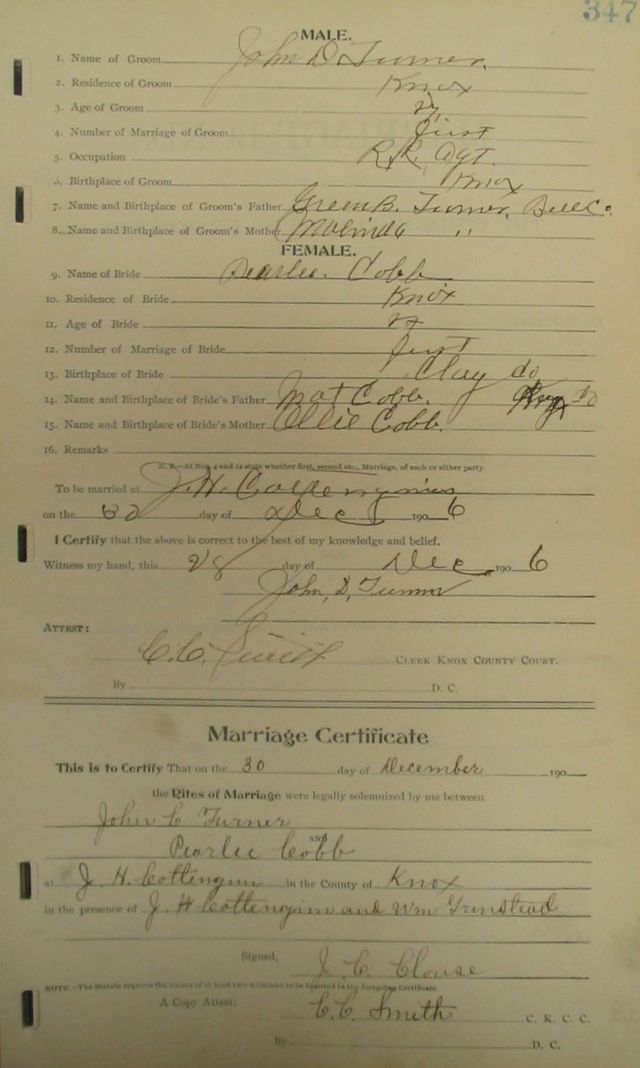 347
MALE.
1. Name of Groom John D. Turner.
2. Residence of Groom Knox
3. Age of Groom
4. Number of Marriage of Groom first
5. Occupation R.R. Agt.
6. Birthplace of Groom Knox
7. Name and Birthplace of Groom's Father Green B. Turner, Bell Co.
8. Name and Birthplace of Groom's Mother Malinda "
FEMALE.
9. Name of Bride Pearlie. Cobb
10. Residence of Bride Knox
11. Age of Bride
12. Number of Marriage of Bride first
13. Birthplace of Bride Clay do
14. Name and Birthplace of Bride's Father Mat Cobb. Knox
15. Name and Birthplace of Bride's Mother Ellie Cobb.
16. Remarks
N. B.—At Nos. 4 and 12 state whether first, second etc., Marriage, of each or either party.
To be married at J. H.
on the 30 day of Dec 1906
I Certify that the above is correct to the best of my knowledge and belief.
Witness my hand, this 28 day of Dec 1906
John, D, Turner
ATTEST:
C. C. Smith CLERK KNOX COUNTY COURT.
By D. C.
Marriage Certificate
This is to Certify That on the 30 day of December 190
the Rites of Marriage were legally solemnized by me between
John C Turner
AND
Pearlie Cobb
at J. H. Cottengim in the County of Knox
in the presence of J. H Cottengim and Wm Grinstead
Signed, J. C. Clouse
NOTE.—The Statute requires the names of at least two witnesses to be inserted in the foregoing Certificate.
A Copy Attest: C. C. Smith C. K. C. C.
By D. C.